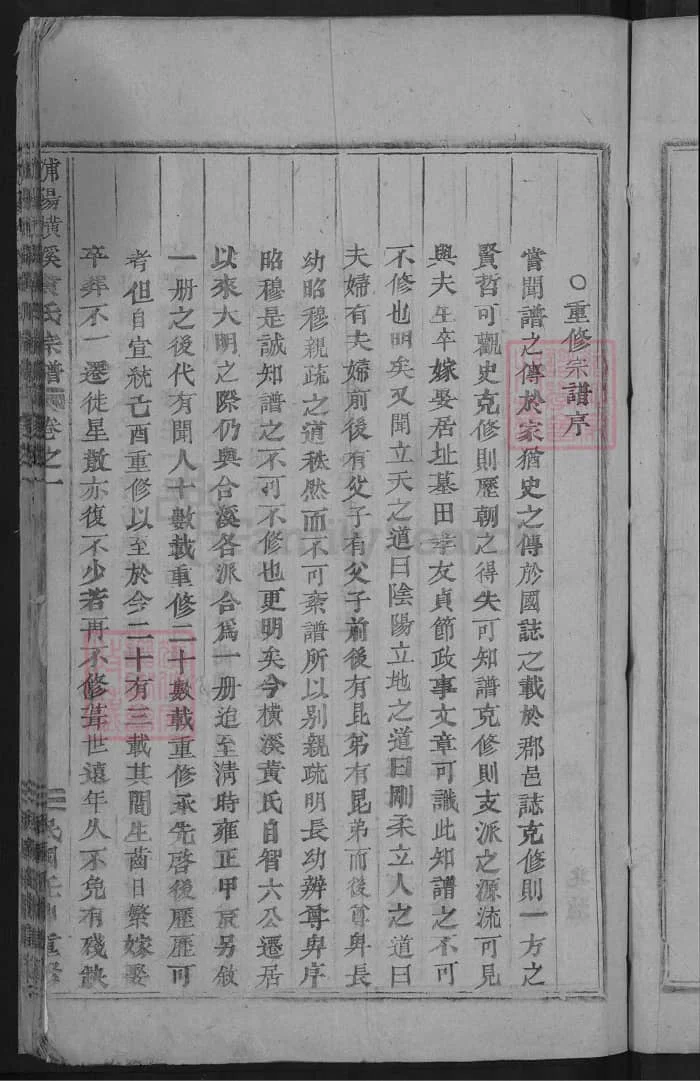 ○重修宗譜序
嘗聞譜之傳於家猶史之傳於國誌之載於郡邑誌克修則一方之
賢哲可觀史克修則歷朝之得失可知譜克修則支派之源流可見
與夫生卒嫁娶居址墓田孝友貞節政事文章可識此知譜之不可
不修也明矣又聞立天之道曰陰陽立地之道曰剛柔立人之道曰
夫婦有夫婦前後有父子有父子前後有昆弟有昆弟而後尊卑長
幼昭穆親疏之道秩然而不可紊譜所以別親疏明長幼辨尊卑序
昭穆是誠知譜之不可不修也更明矣今橫溪黃氏自智六公遷居
以來大明之際仍與合溪各派合爲一册迨至清時雍正甲寅另敘
一册之後代有聞人十數載重修二十數載重修承先啓後歷歷可
考但自宣統己酉重修以至於今二十有三載其間生齒日繁嫁娶
卒葬不一遷徙星散亦復不少若再不修葺世遠年久不免有殘缺
浦陽橫溪黃氏宗譜 卷之一 民國壬申重修